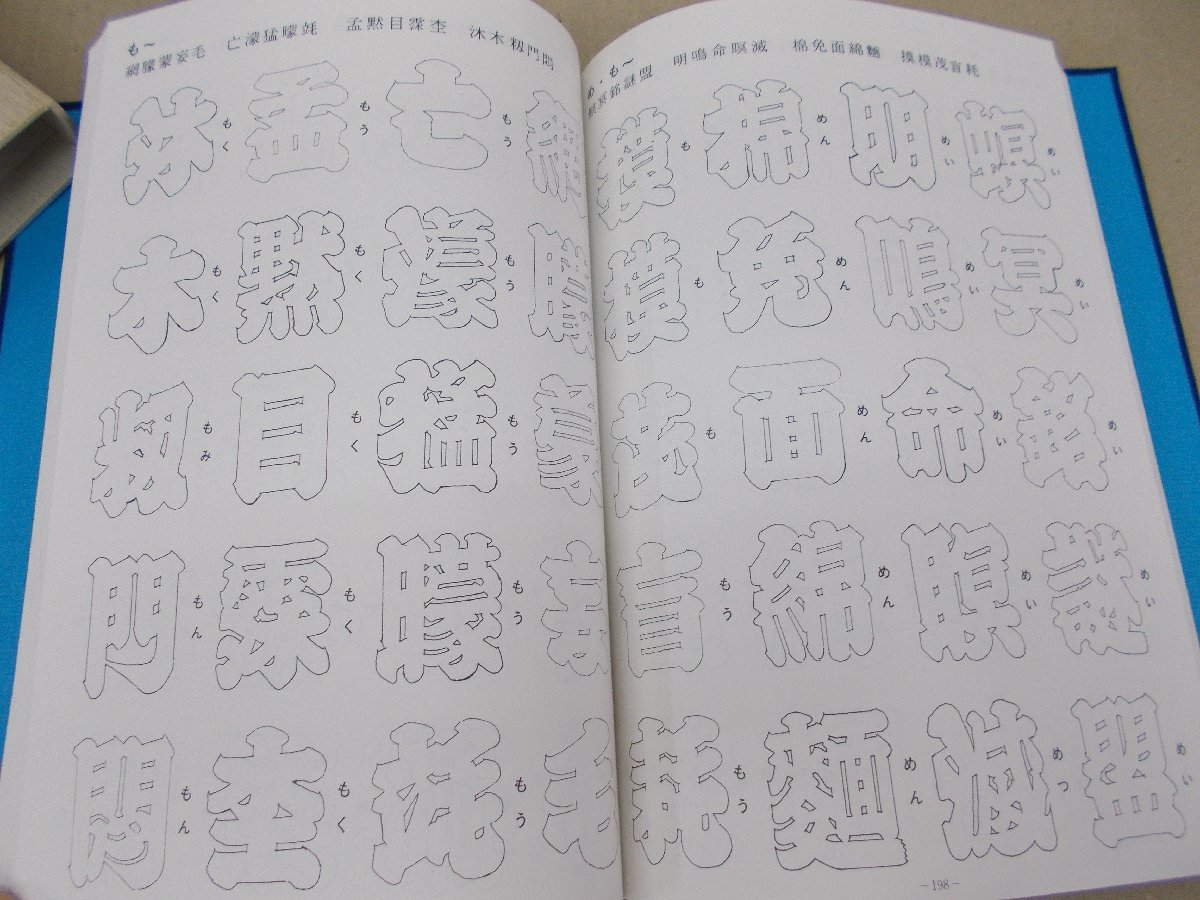 め・も～
冥銘謎盟 明鳴命暝滅 棉免面綿麺 摸模茂盲耗
めい
冥 めい
銘 めい
謎 めい
盟 めい
明 めい
鳴 めい
命 めい
暝 めい
滅 めつ
棉 めん
免 めん
面 めん
綿 めん
麺 めん
摸 も
模 も
茂 も
盲 もう
耗 もう
－198－
も～
網朦蒙妄毛 亡濛猛曚 孟黙目霂杢 沐木籾門悶
網
朦
蒙
妄
毛
亡 もう
濛 もう
猛 もう
曚 もう
もう
孟 もう
黙 もく
目 もく
霂 もく
杢 もく
沐 もく
木 もく
籾 もみ
門 もん
悶 もん